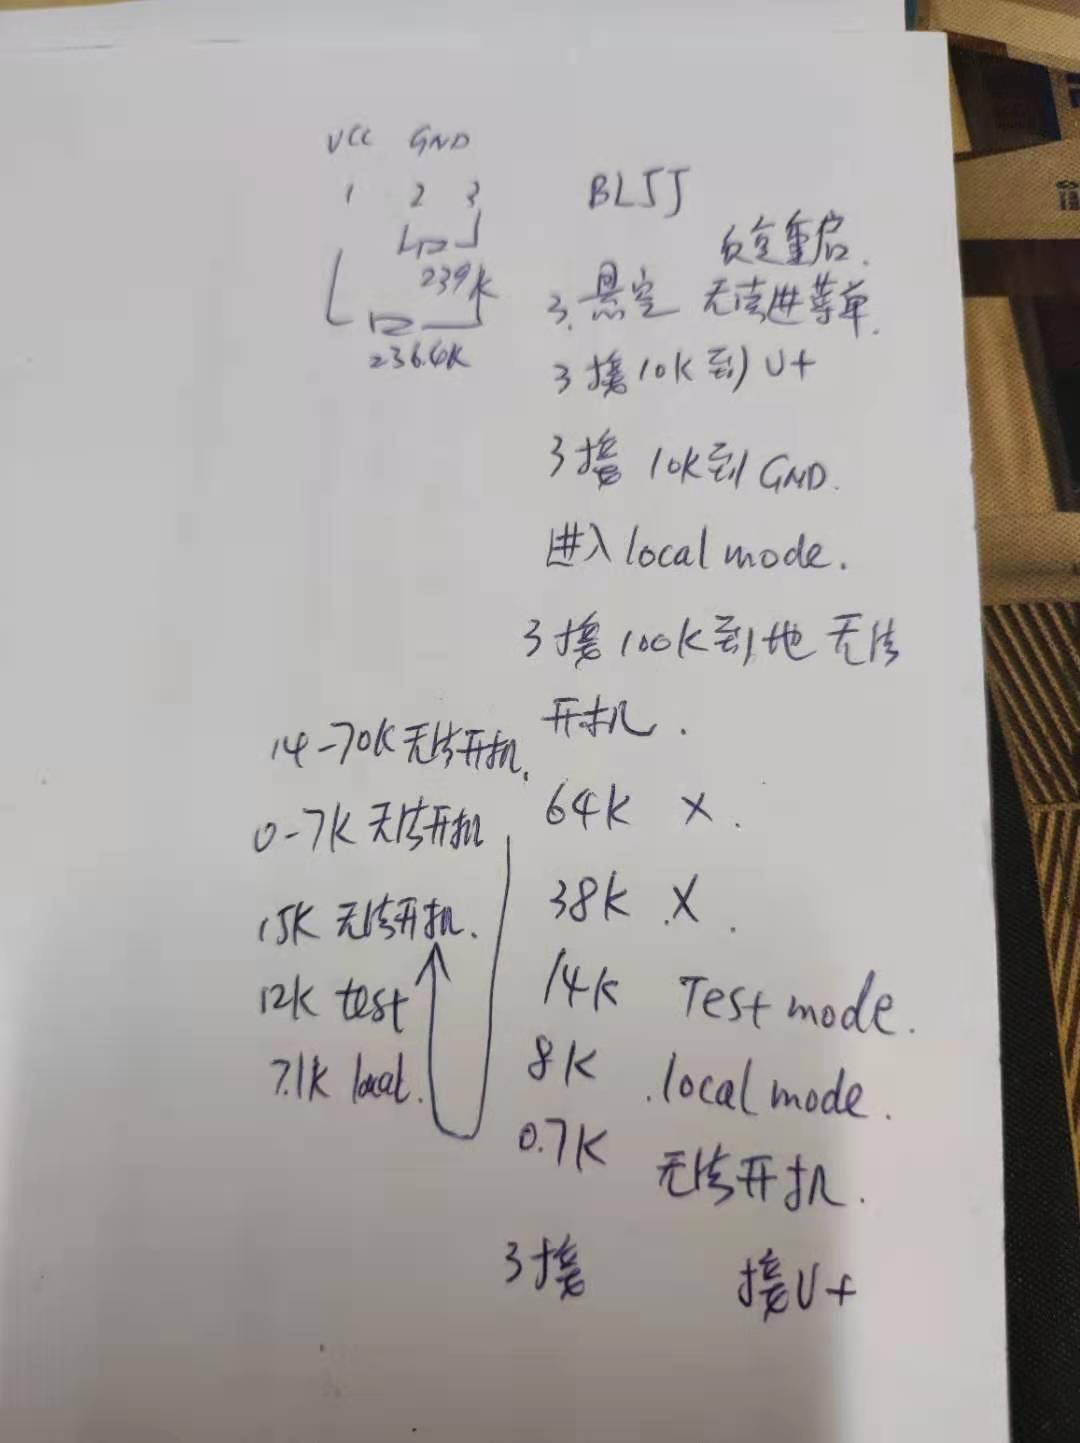 VCC GND
1 2 3
239K
236.6K
BLJJ
重启.
3.悬空 无法进菜单.
3接10K到V+
3接 10K到GND.
进入local mode.
3接100K到地 无法
开机.
64K X.
38K X.
14K Test mode.
8K local mode.
0.7K 无法开机.
3接 接V+
14-70K无法开机.
0-7K无法开机
15K 无法开机.
12K test
7.1K local.